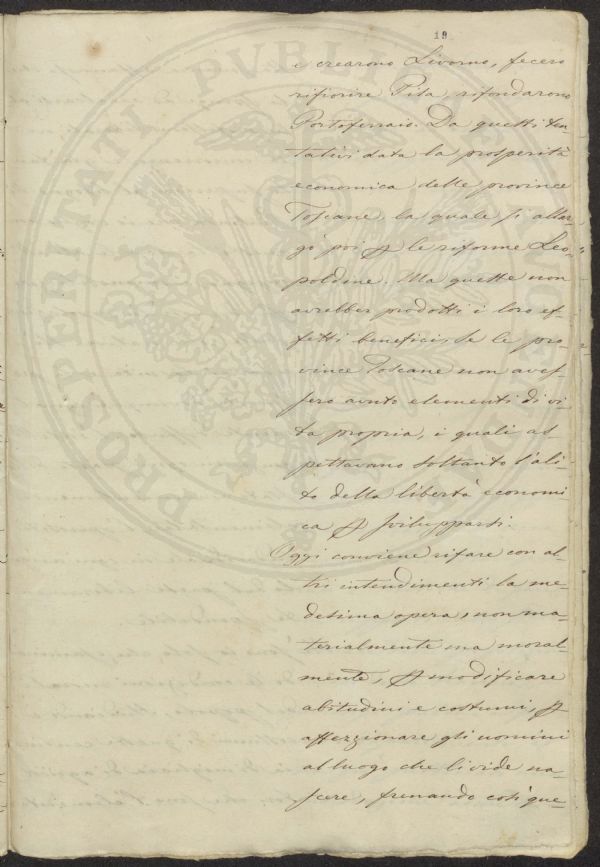 19
e crearono Livorno, fecero
rifiorire Pisa, rifondarono
Portoferraio. Da questi ten
tativi data la prosperità
economica delle province
Toscane la quale si allar-
gò poi p le riforme Leo-
poldine. Ma queste non
avrebber prodotti i loro ef-
fetti benefici, se le pro-
vince Toscane non aves-
sero avuto elementi di vi-
ta propria, i quali as-
pettavano soltanto l'ali-
to della libertà economi-
ca p svilupparsi.
Oggi conviene rifare con al-
tri intendimenti la me-
desima opera, non ma-
terialmente ma moral-
mente, p modificare
abitudini e costumi, p
affezzionare gli uomini
al luogo che li vide na-
scere, frenando così que-
PROSPERITATI PVBLICAE AVGENDAE